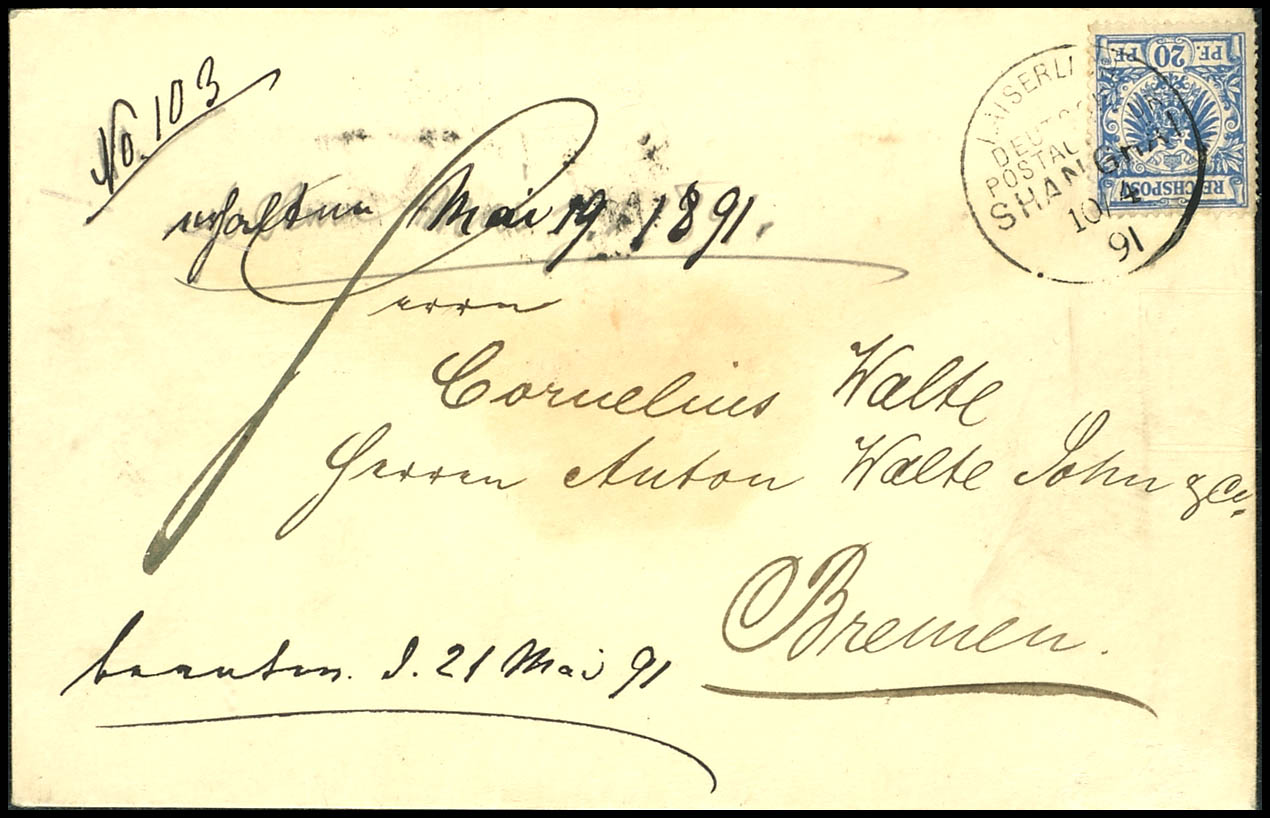 No. 103
PF. 20 PF.
REICHSPOST
DEUTSCHE
POSTAL
SHANGHAI
10/4
91
erhalten Mai 19 1891.
Herrn
Cornelius Walte
Herren Anton Walte Sohn & Co.
Bremen.
beantw. d. 21 Mai 91